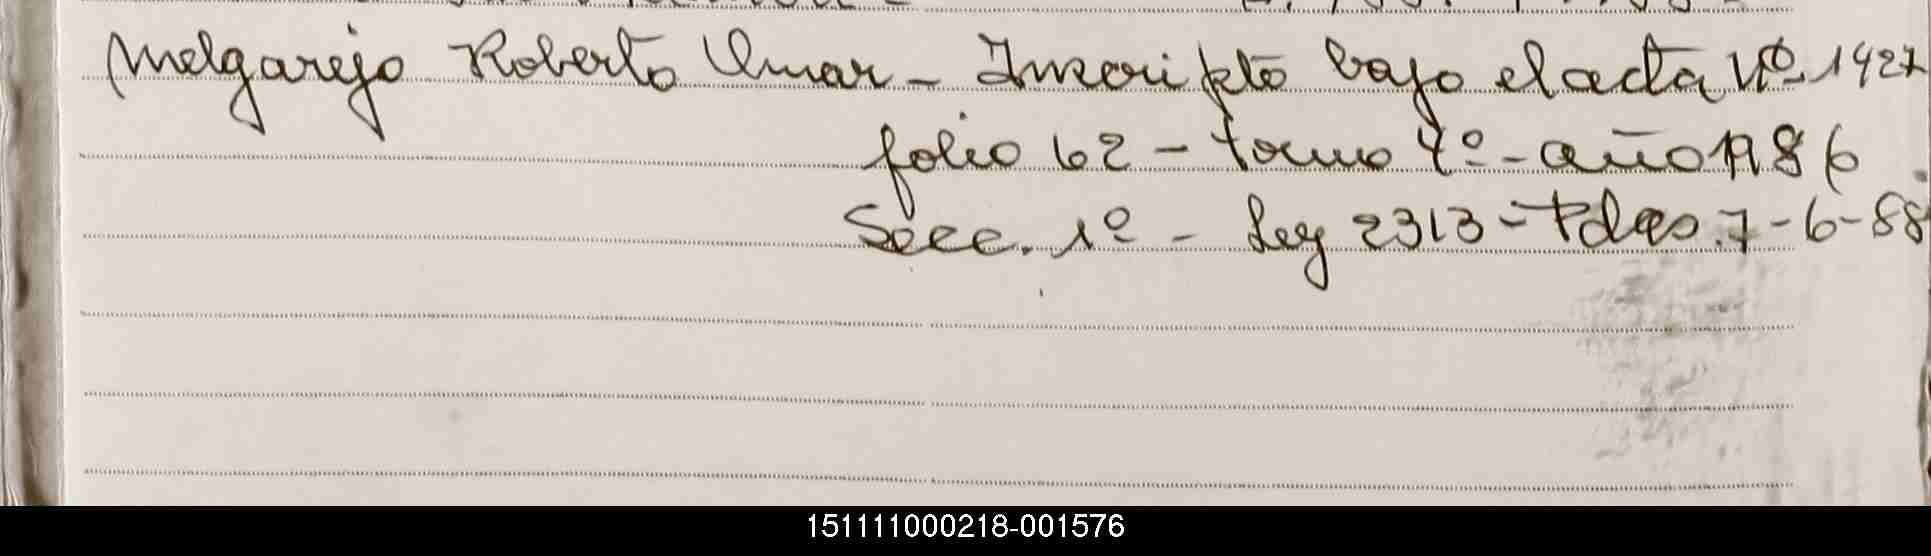 Melgarejo Roberto Omar - Inscripto bajo el acta Nº 1427
folio 62 - tomo 4º - año 1986
Secc. 1º - Ley 2313 - Pdas. 7-6-88
151111000218-001576